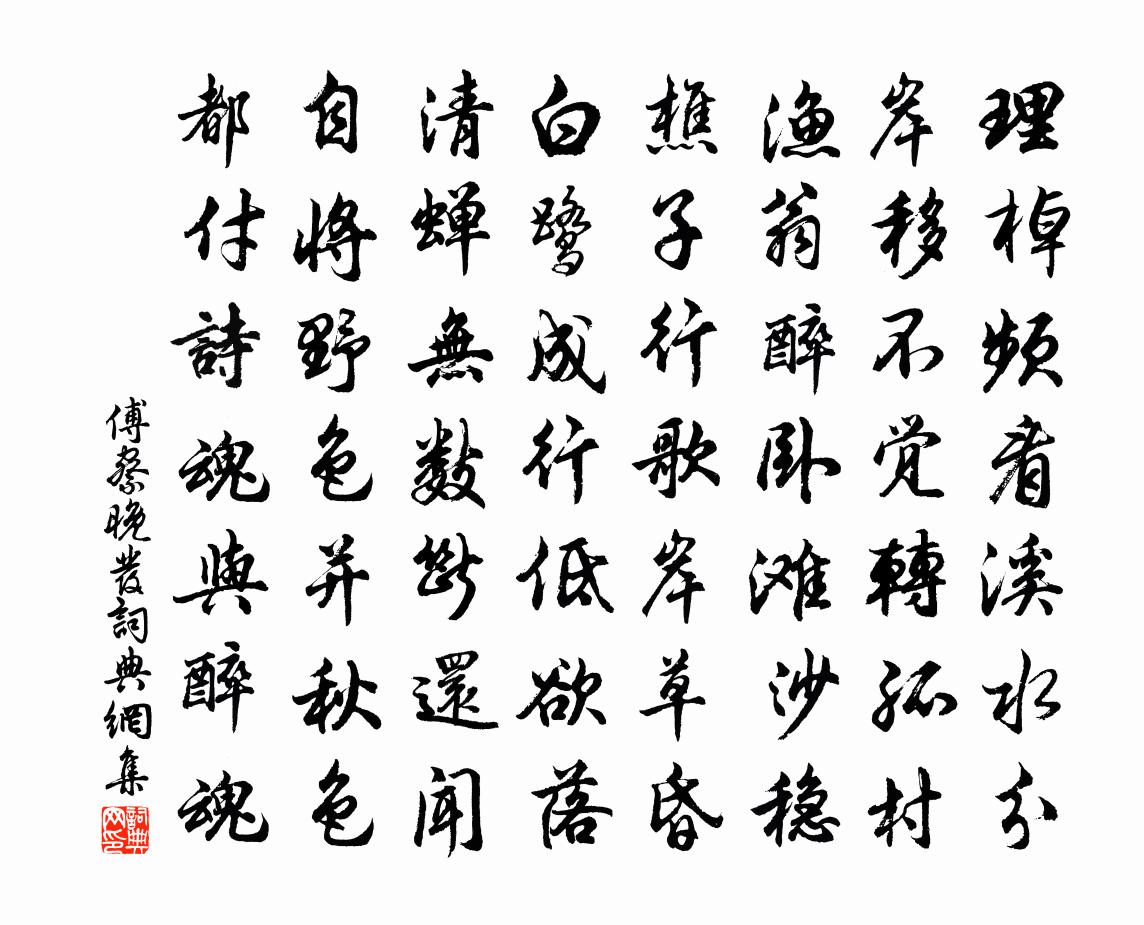 理棹頻看溪水分
岸移不觉轉孤村
漁翁醉卧滩沙穏
樵子行歌岸草昏
白鹭成行低欲落
清蝉無数断還闻
自将野色并秋色
都付詩魂與醉魂
傅察晚發詞典網集
詞典网印